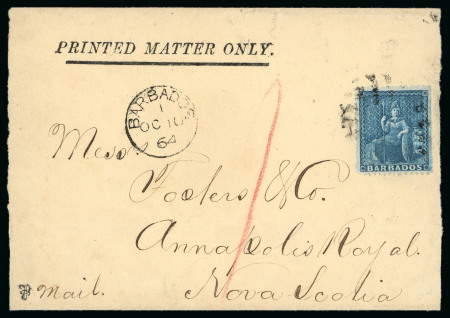 PRINTED MATTER ONLY.
BARBADOS
1
OC 10
64
BARBADOS
Messrs
Fosters & Co.
Annapolis Royal.
Nova Scotia
Mail.
1